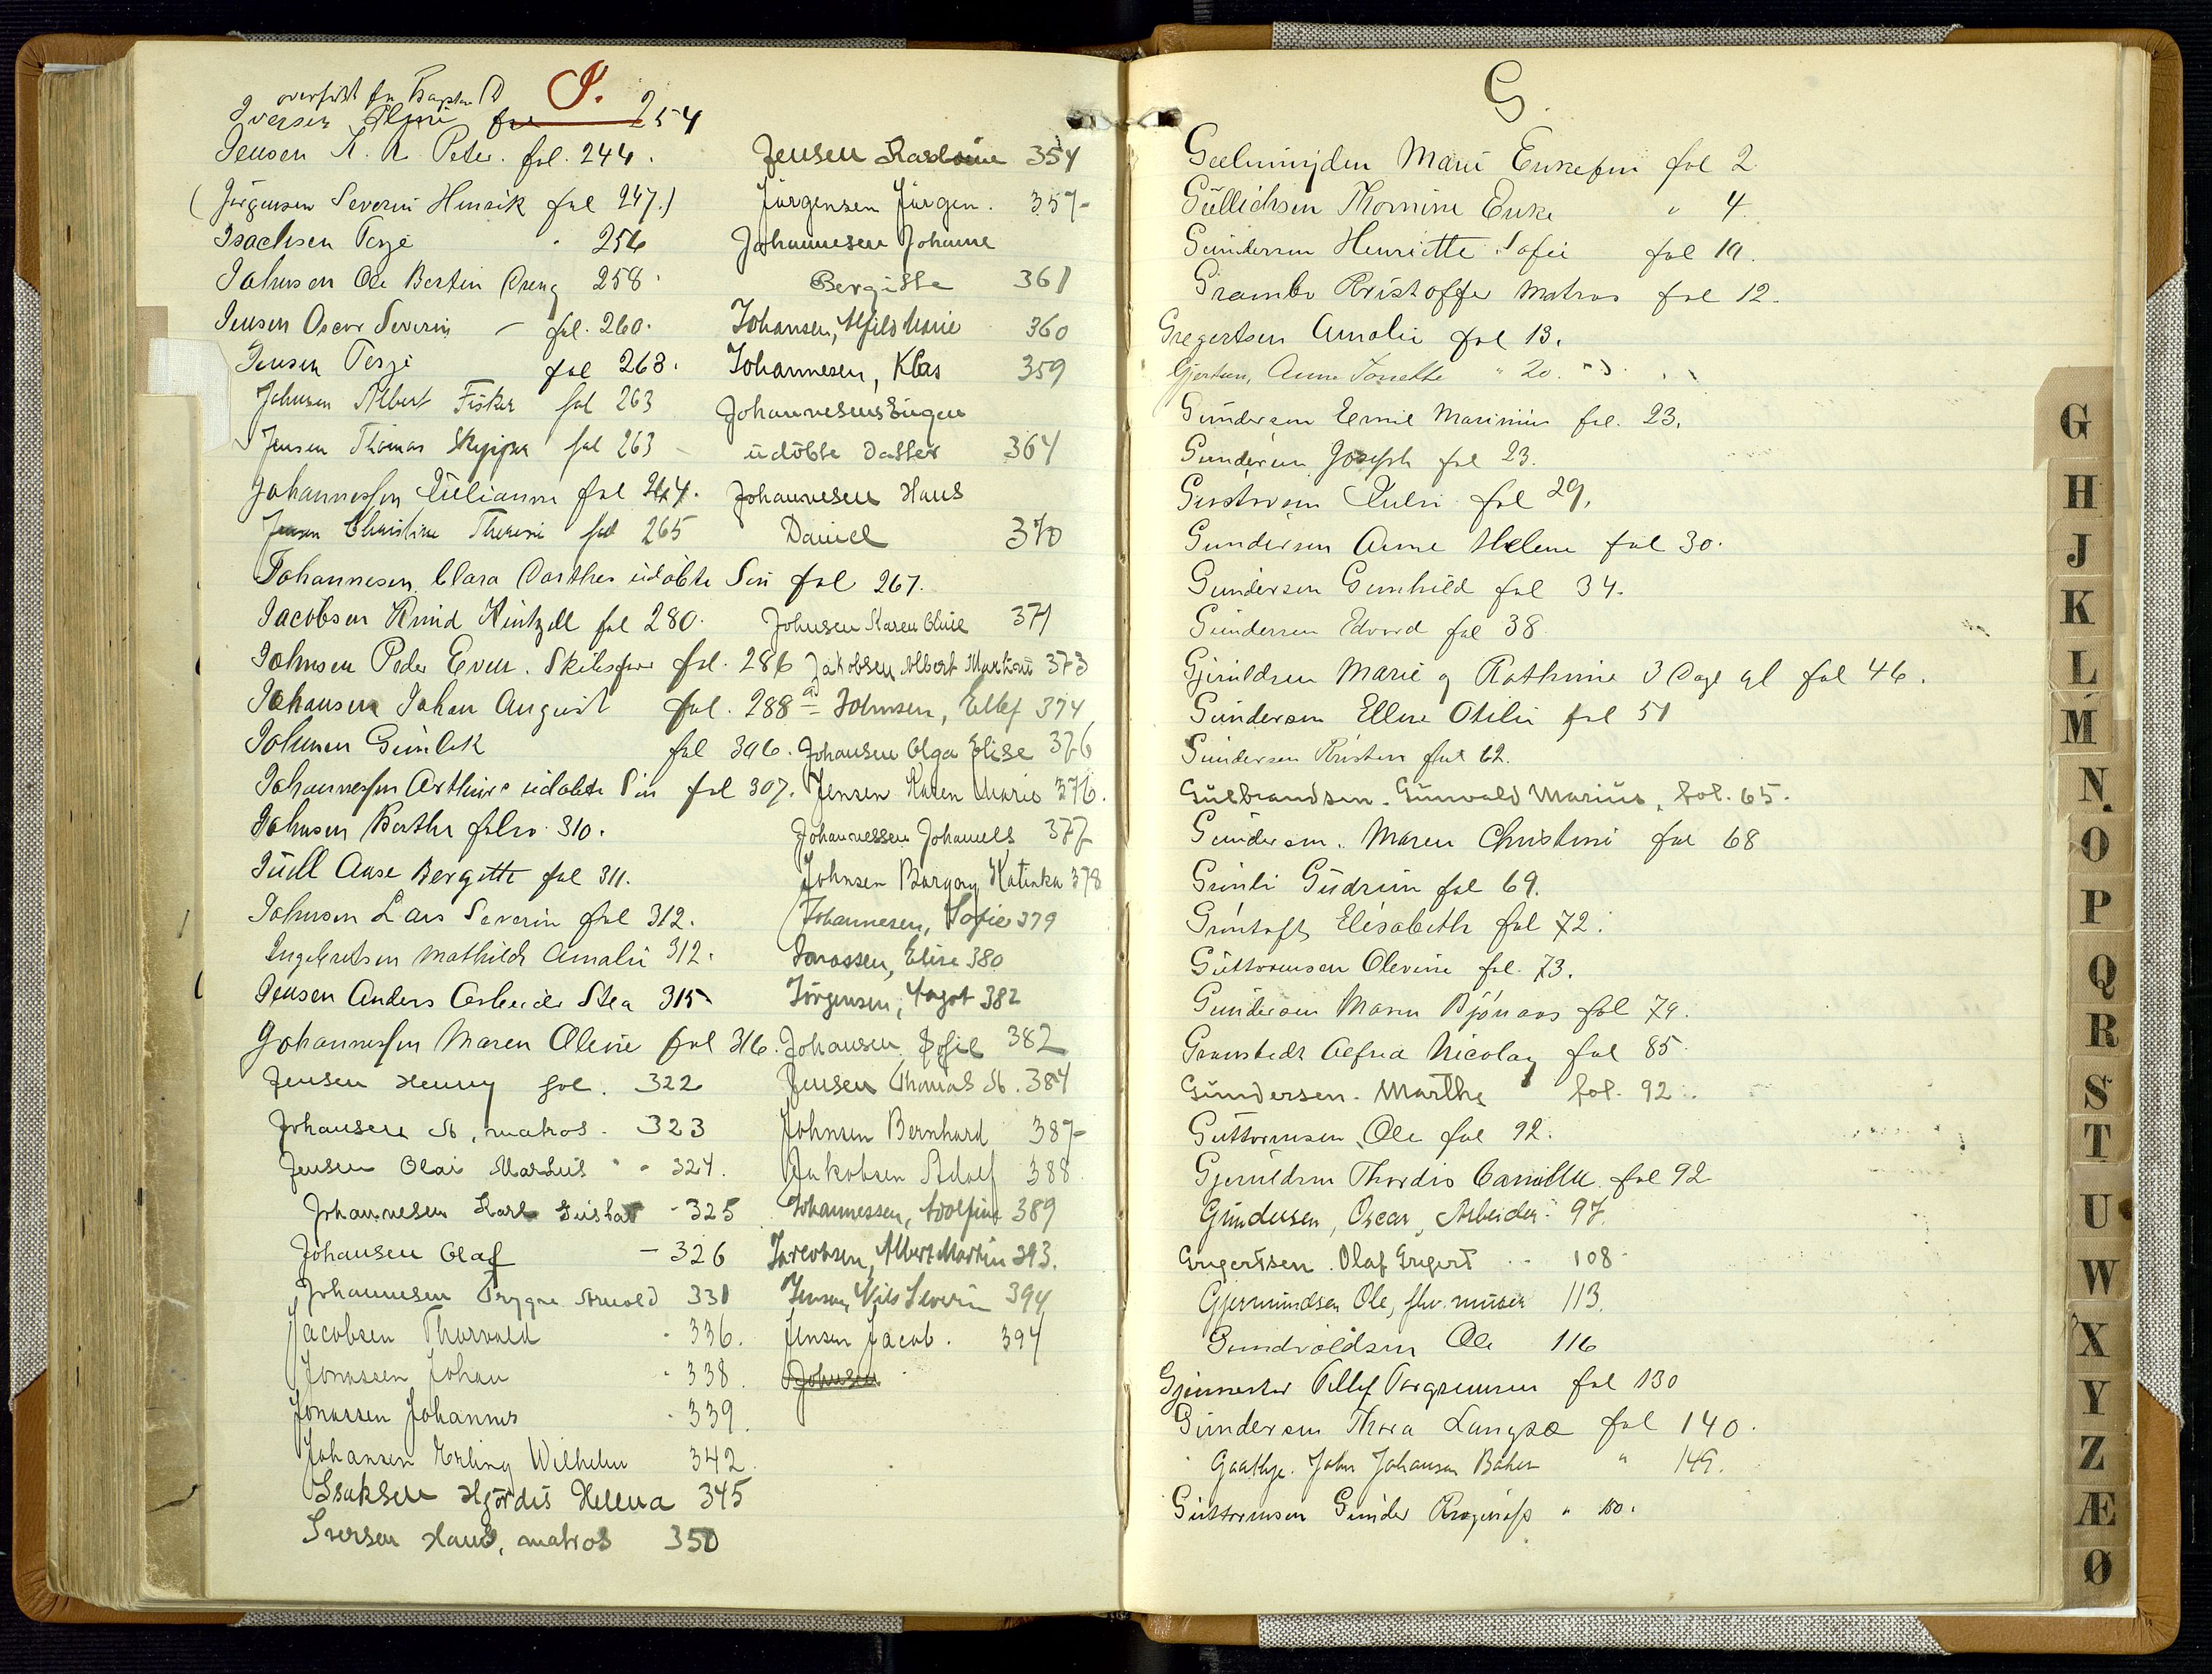 J.
overført fra
Iversen 254
Jensen A. A. Peter. fol. 244.
(Jørgensen Severin Henrik fol 247.)
Isachsen Terje " 256
Johnsen Ole Bertin Dreng 258.
Jensen Oscar Severin - fol. 260.
Jensen Terje fol 263.
Johnsen Albert Fisker fol 263
Jensen Thomas Skipper fol 263
Johannessen Juliane fol 264.
Jensen Christine Therese fol 265
Johannesen Clara Dorthea udøbte Søn fol 267.
Jacobsen Knud fol 280.
Johnsen Peder Even. fol. 286
Johansen Johan August fol. 288
Johnsen Gunlek fol 306.
Johannessen Arthur udøbte Søn fol 307.
Johnsen Berthe folio 310.
Juell Aase Bergitte fol 311.
Johnsen Lars Severin fol 312.
Ingebretsen Mathilde Amalie 312.
Jensen Anders Arbeider Stea 315
Johannessen Maren Oline fol 316.
Jensen Henny fol. 322
Johansen A, matros. 323
Jensen Olai Marius " - 324.
Johannesen Karl Gustav - 325
Johansen Olaf - 326
Johannesen Trygve Arnold 331
Jacobsen Thorvald . 336.
Jonassen Johan . 338.
Jonassen Johannes . 339.
Johansen Erling Wilhelm 342.
Isaksen Hjördis Helena 345
Iversen Hans, matros 350
Jensen 354
Jürgensen Jürgen. 357
Johannesen Johanne
Bergitte 361
Johansen, Alfild Marie 360
Johannesen, Klas 359
Johannesens Eugen
udöbte Datter 364
Johannesen Hans
Daniel 370
Johnsen Karen Oline 371
Jakobsen Albert Martin 373
Johnsen, Ellef 374
Johansen Olga Elise 376
Jensen Karen Marie 376.
Johannessen Johannes 377
Johnsen Borgny Katinka 378
Johannesen, Sofie 379
Jonassen, Elise 380
Jörgensen, Aagot 382
Johansen 382
Jensen Thomas A. 384
Johnsen Bernhard 387
Jakobsen Adolf 388
Johannessen, Adolfine 389
Jacobsen, Albert Martin 393.
Jensen, Nils Severin 394
Jensen Jacob. 394
Johnsen
G.
Geelmuyden Marie Enkefru fol 2
Güllichsen Thomine Enke " 4.
Gundersen Henriette Sofie fol 10.
Grambo Kristoffer Matros fol 12.
Gregertsen Amalie fol 13.
Gjertsen, Anne Tonette " 20.
Gundersen Emil Marinius fol. 23.
Gundersen Joseph fol 23.
Gustavsen Julie fol 29.
Gundersen Anne Helene fol 30.
Gundersen Gunhild fol 34.
Gundersen Edvard fol 38
Gjeruldsen Marie og Kathrine 3 Dage gl fol 46.
Gundersen Elline Otilie fol 51
Gundersen Kristen fol 62.
Gulbrandsen. Gunvald Marius, fol. 65.
Gundersen. Maren Christine fol 68
Grimli Gudrun fol 69.
Gröntoft Elisabeth fol 72.
Guttormsen Olevine fol. 73.
Gundersen Maren Bjönaas fol 79.
Alfred Nicolay fol 85.
Gundersen. Marthe fol. 92.
Guttormsen Ole fol 92.
Gjeruldsen Thordis Camilla fol 92
Gundersen, Oscar, Arbeider 97.
Gregertsen. Olaf Gregert 108
Gjermundsen Ole, fhv. murer 113.
Gundvaldsen Ole 116
Ellef Torgrimsen fol 130
Gundersen Thora Langsæ fol 140.
Gaathje. John Johansen Baker " 149.
Guttormsen Gunder " 150.
G
H
J
K
L
M
N
O
P
Q
R
S
T
U
W
X
Y
Z
Æ
Ø